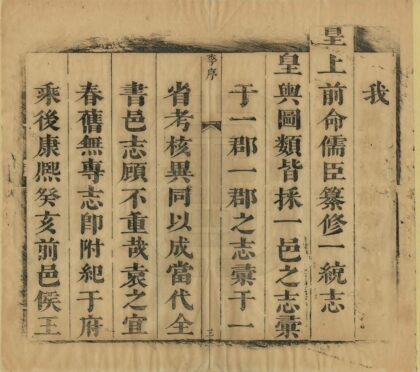 我
皇上前命儒臣纂修一統志
皇輿圖類皆採一邑之志彙
于一郡一郡之志彙于一
李序
三
省考核異同以成當代全
書邑志顧不重哉袁之宜
春舊無專志卽附紀于府
乘後康熙癸亥前邑侯王